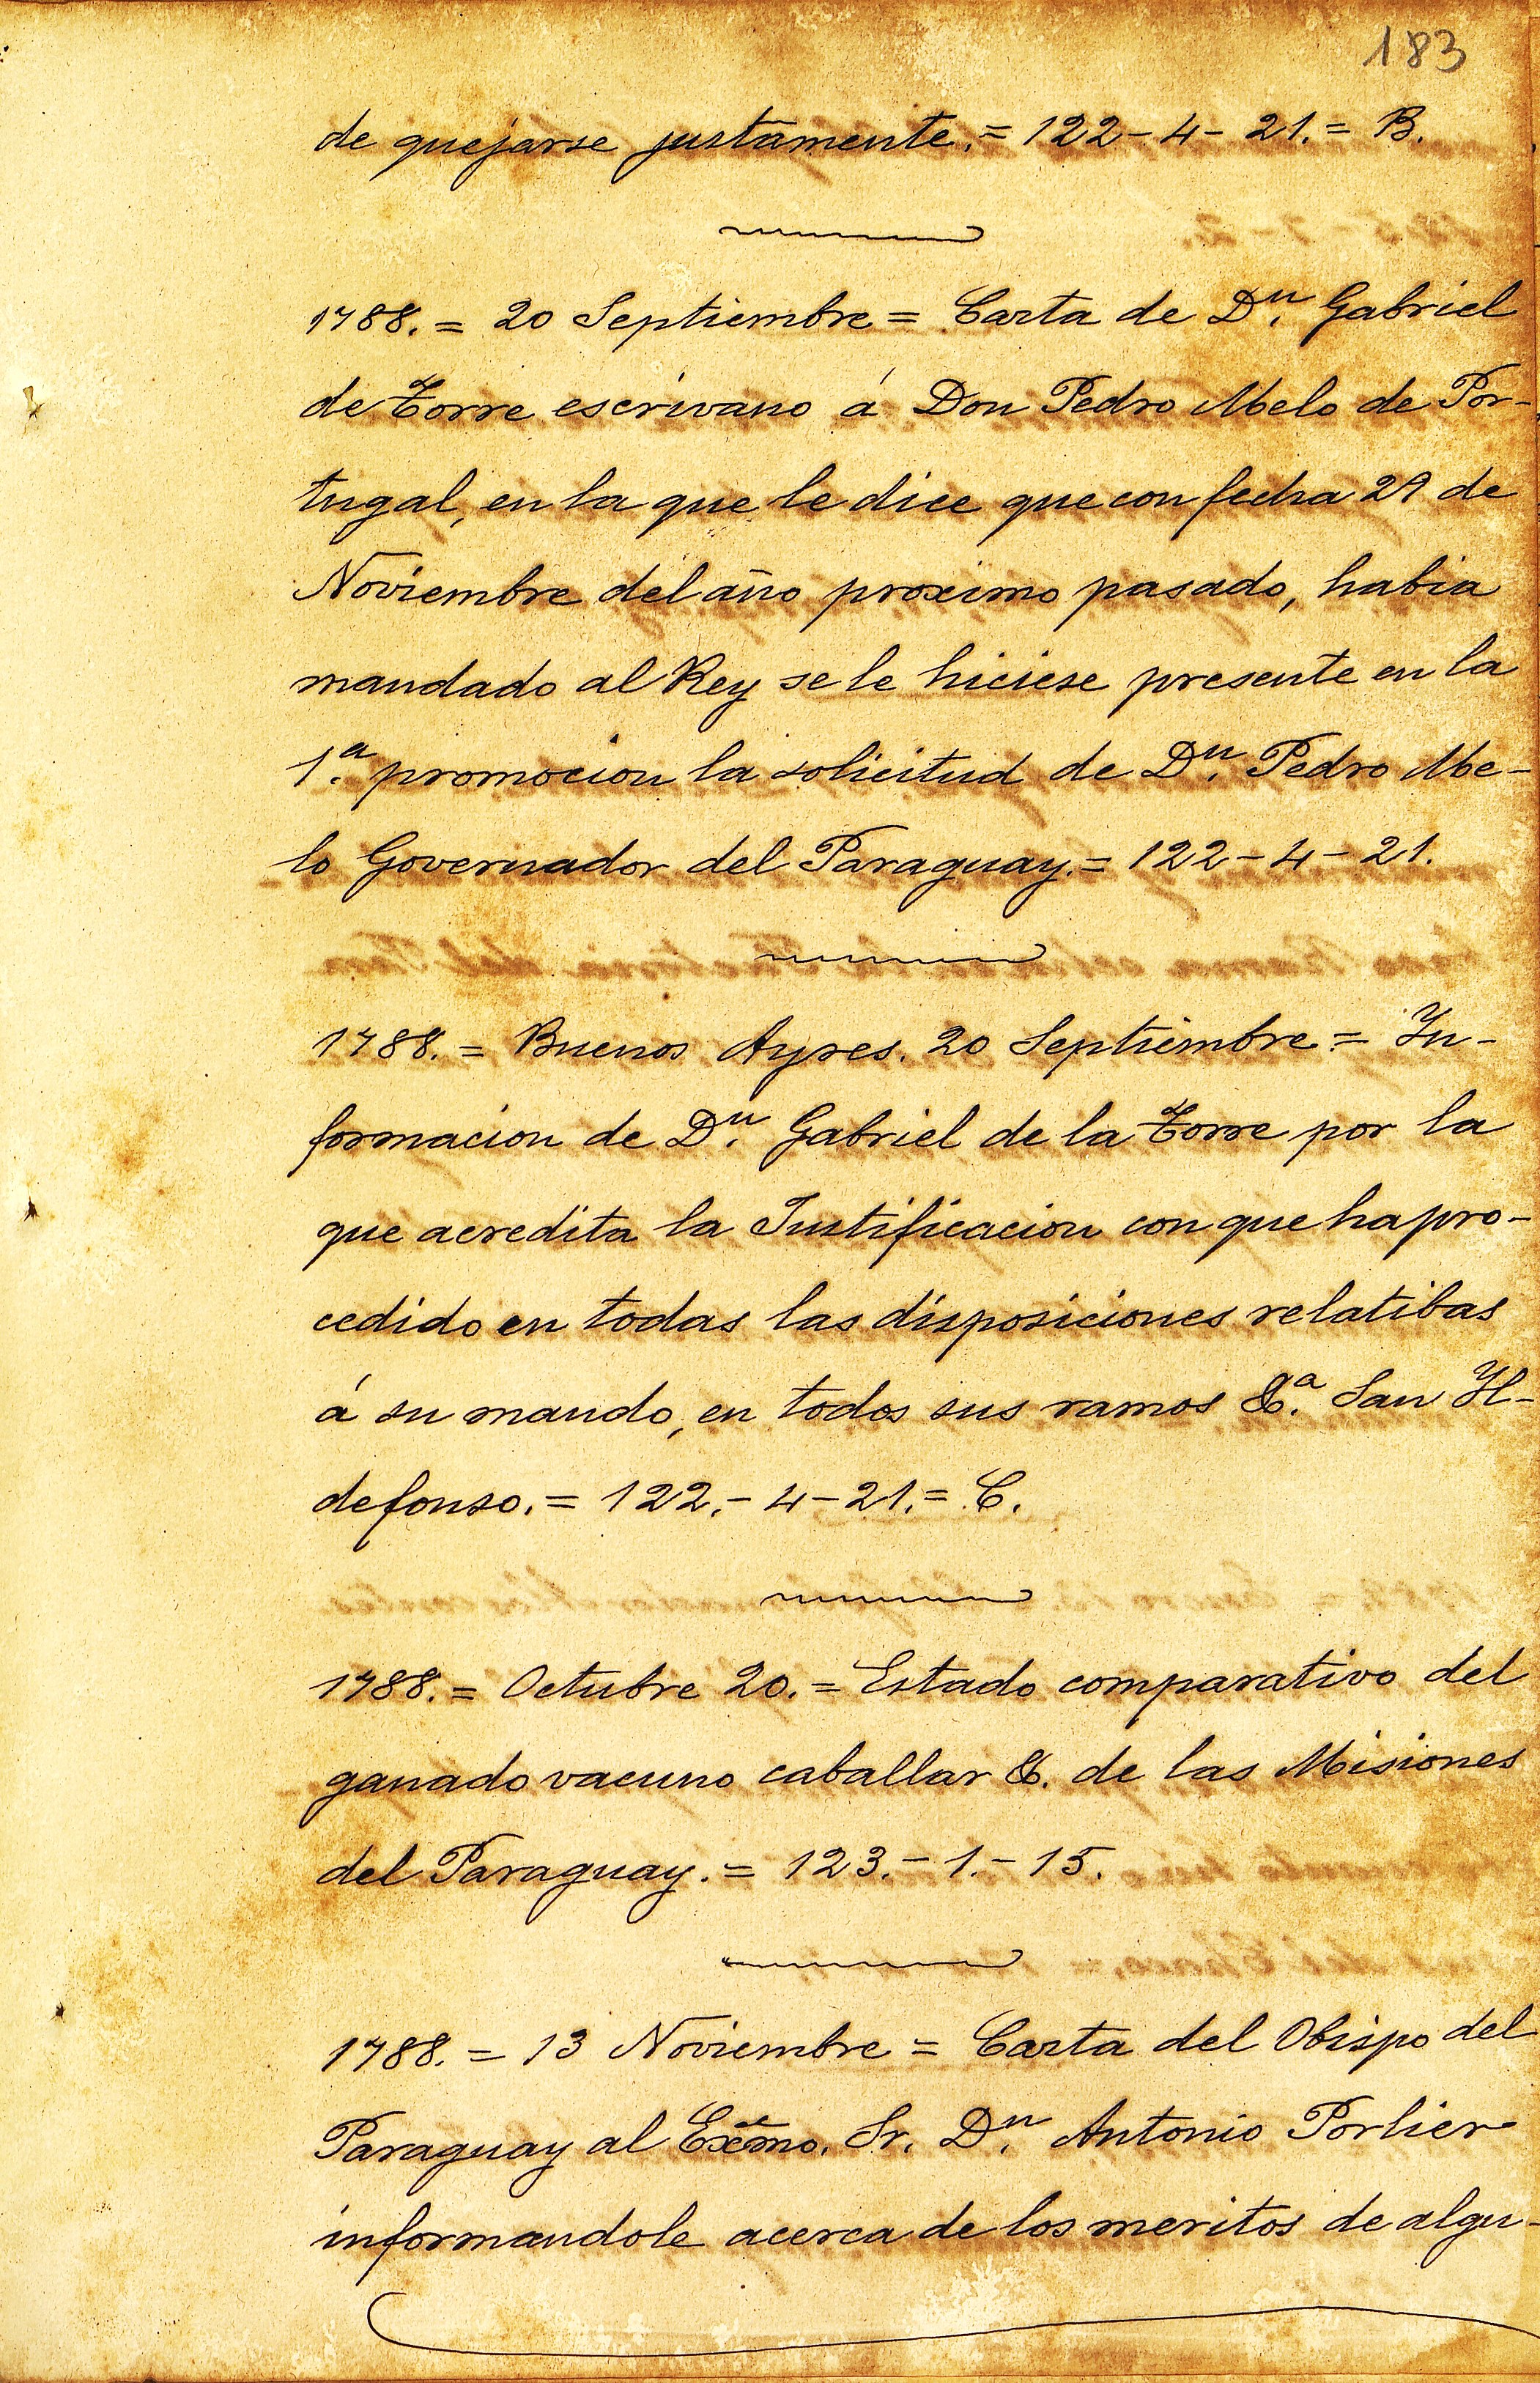 183
de quejarse justamente. = 122 - 4 - 21. = B.
1788. = 20 Septiembre = Carta de Dⁿ. Gabriel
de Torre escrivano á Don Pedro Melo de Por-
tugal, en la que le dice que con fecha 29 de
Noviembre del año proximo pasado, habia
mandado al Rey se le hiciese presente en la
1.ª promocion la solicitud de Dⁿ. Pedro Me-
lo Governador del Paraguay. = 122 - 4 - 21.
1788. = Buenos Ayres. 20 Septiembre = In-
formacion de Dⁿ. Gabriel de la Torre por la
que acredita la Justificacion con que ha pro-
cedido en todas las disposiciones relatibas
á su mando, en todos sus ramos &.ª San Il-
defonso. = 122. - 4 - 21. = C.
1788. = Octubre 20. = Estado comparativo del
ganado vacuno caballar &. de las Misiones
del Paraguay. = 123. - 1. - 15.
1788. = 13 Noviembre = Carta del Obispo del
Paraguay al Exc̃mo. Sr. Dⁿ. Antonio Porlier
informandole acerca de los meritos de algu-